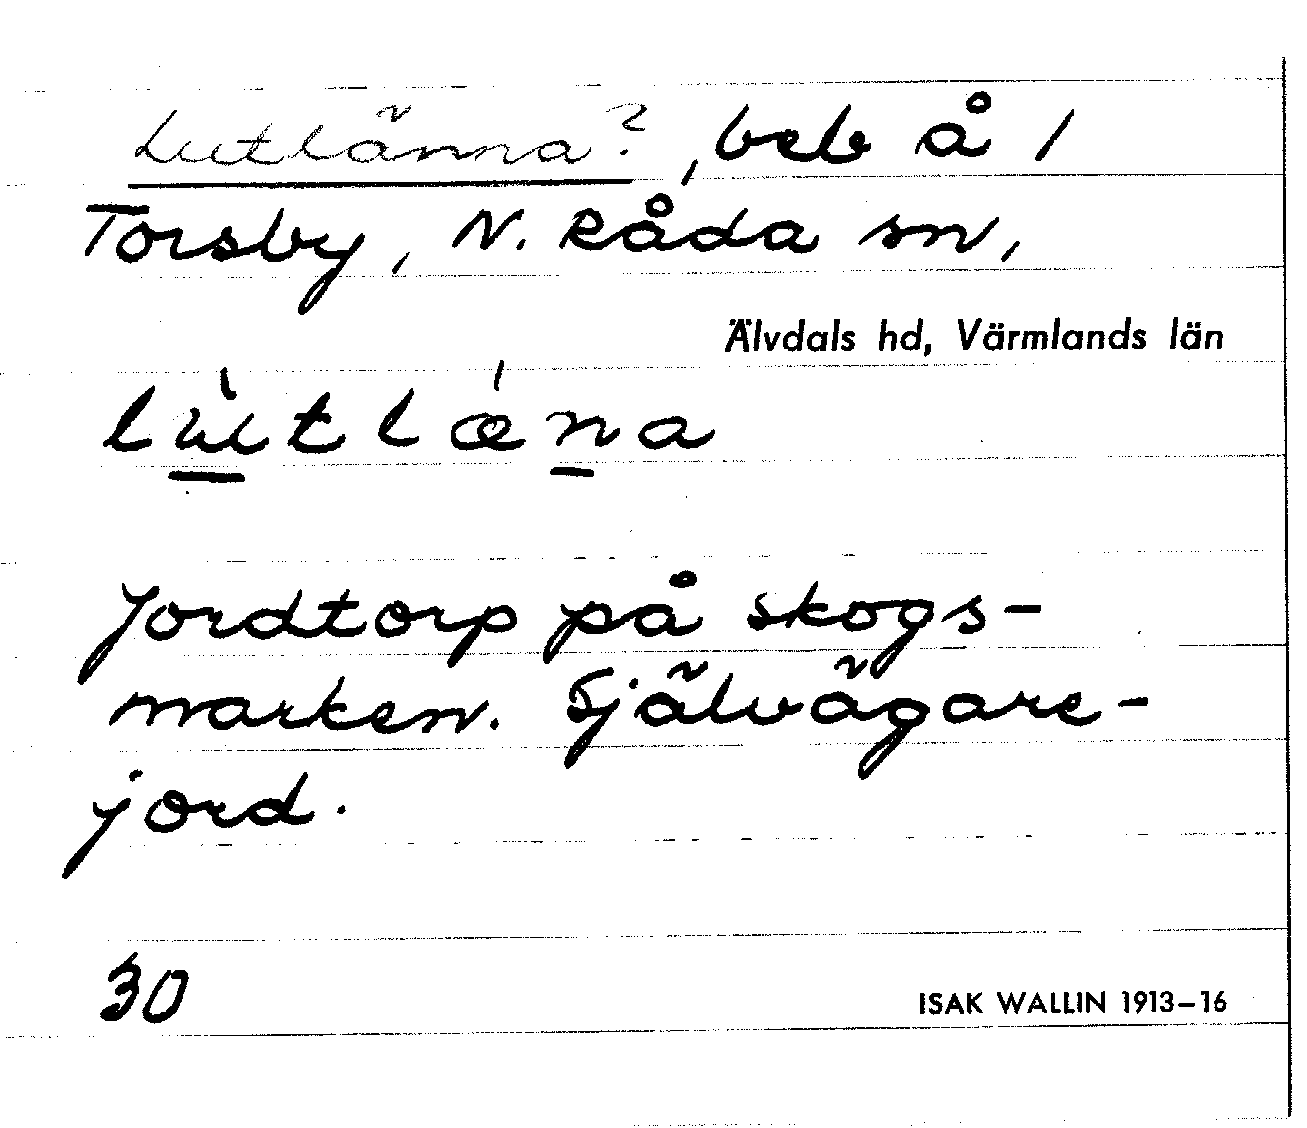 Lutlänna?, beb å 1
Torsby, N. Råda sn,
Älvdals hd, Värmlands län
lùtlǽna
Jordtorp på skogs-
marken. Självägare-
jord.
30
ISAK WALLIN 1913–16